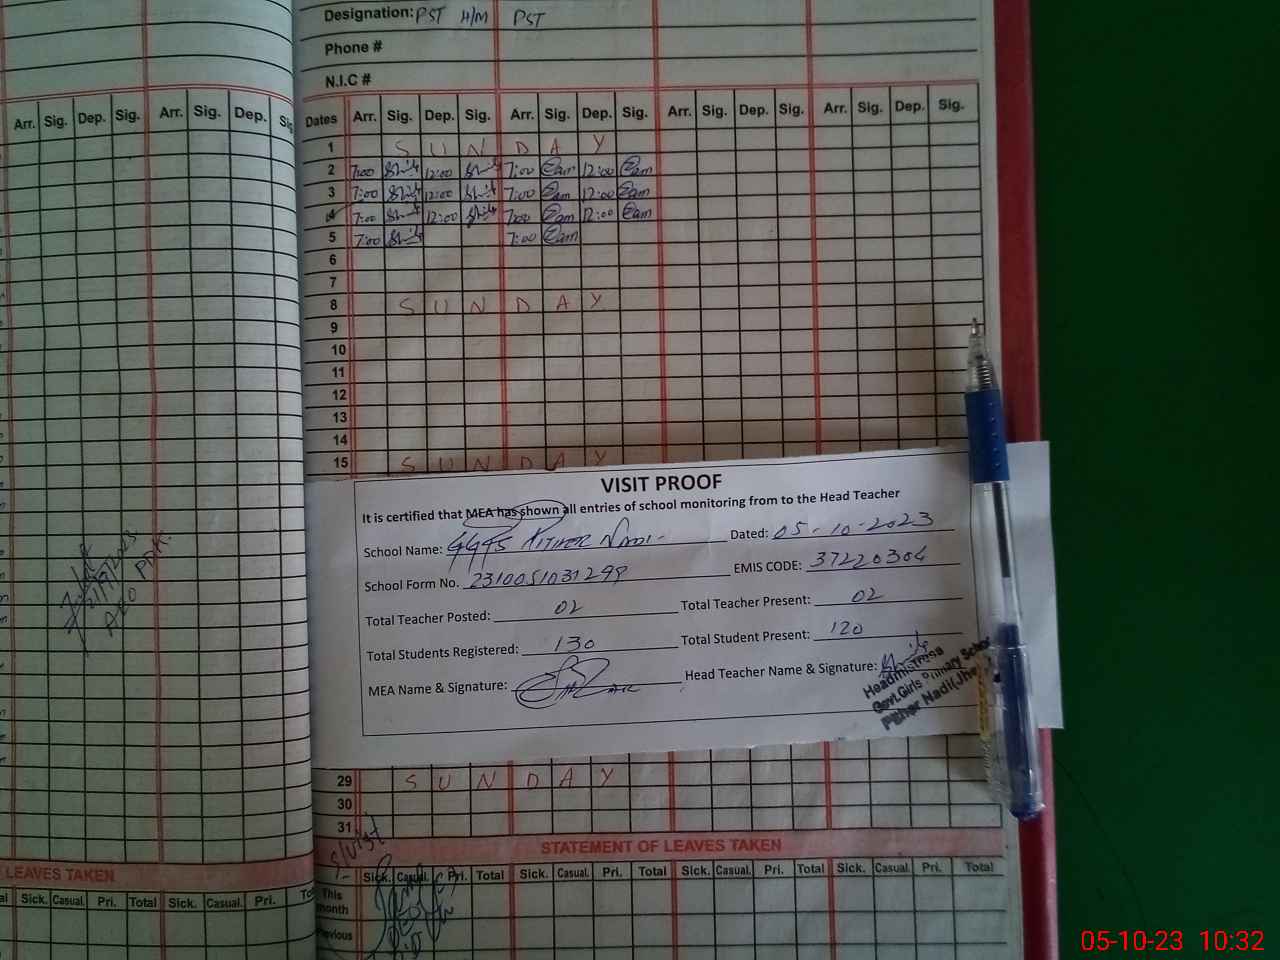 Designation: PST H/M PST
Phone #
N.I.C #
Arr. Sig. Dep. Sig. Arr. Sig. Dep. Sig
Dates Arr. Sig. Dep. Sig. Arr. Sig. Dep. Sig. Arr. Sig. Dep. Sig. Arr. Sig. Dep. Sig.
1 S U N D A Y
2 7:00 12:00 7:00 12:00
3 7:00 12:00 7:00 12:00
4 7:00 12:00 7:00 12:00
5 7:00 7:00
6
7
8 S U N D A Y
9
10
11
12
13
14
15 S U N D A Y
VISIT PROOF
It is certified that MEA has shown all entries of school monitoring from to the Head Teacher
School Name: GGPS Nadi Dated: 05-10-2023
School Form No. 2310051031298 EMIS CODE: 37220304
Total Teacher Posted: 02 Total Teacher Present: 02
Total Students Registered: 130 Total Student Present: 120
MEA Name & Signature: Head Teacher Name & Signature:
Headmistress
Govt.Girls Primary School
Nadi
29 S U N D A Y
30
31
LEAVES TAKEN
STATEMENT OF LEAVES TAKEN
Sick. Casual. Pri. Total Sick. Casual. Pri.
Sick. Casual. Pri. Total Sick. Casual. Pri. Total Sick. Casual. Pri. Total Sick. Casual. Pri. Total
This month
Previous
05-10-23 10:32